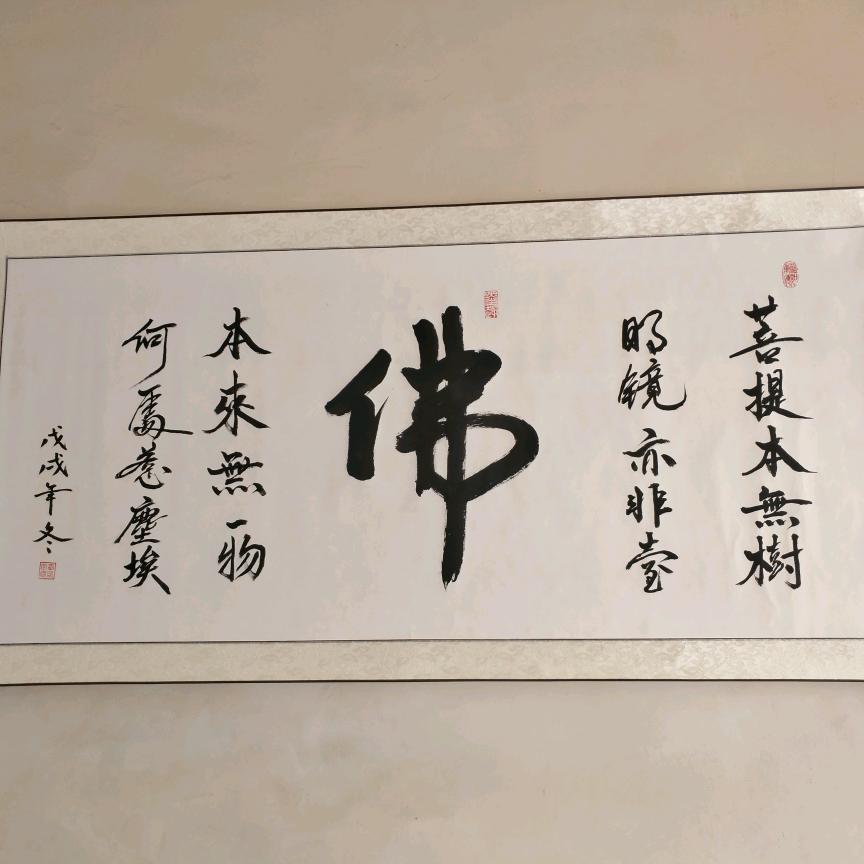 菩提本無樹
明镜亦非臺
佛
本來無一物
何處惹塵埃
戊戌年冬